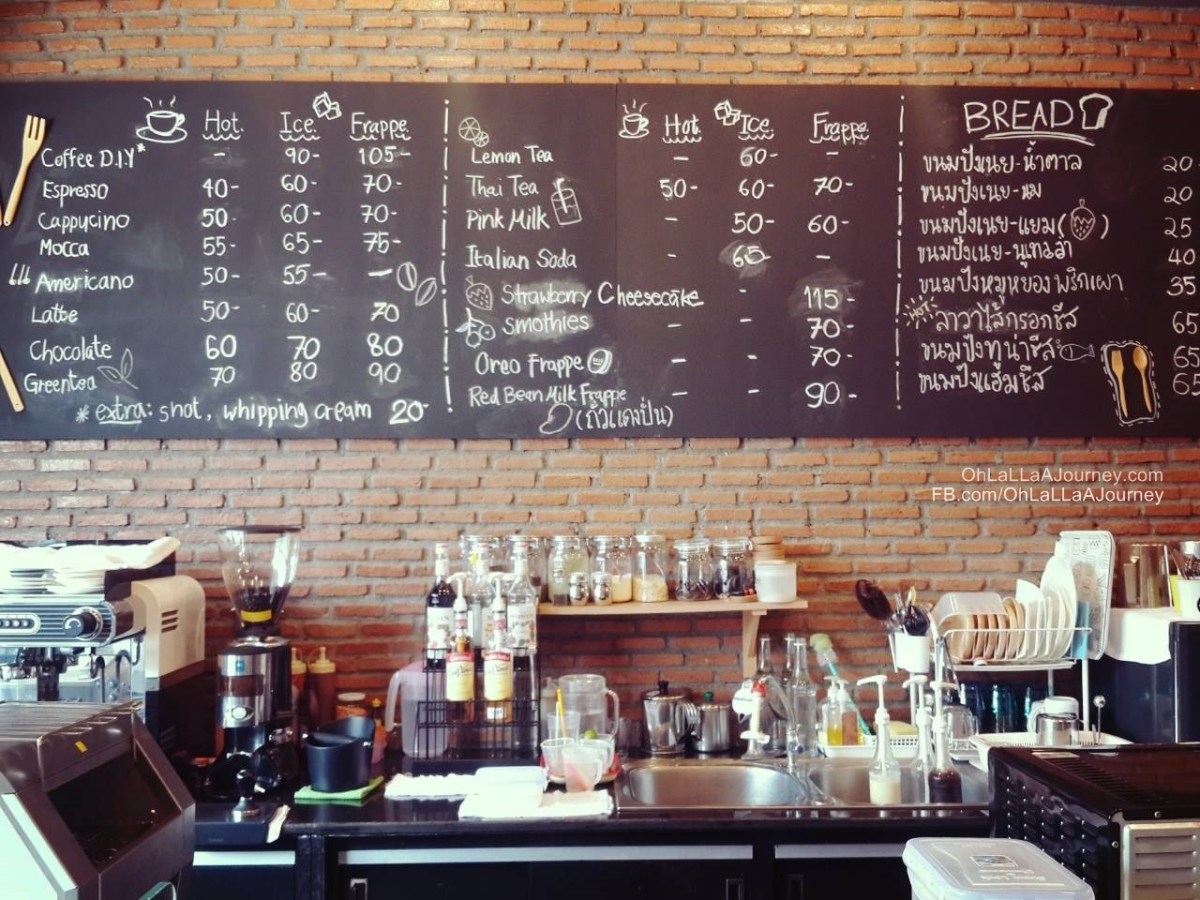 Hot Ice Frappe
Coffee D.I.Y* - 90- 105-
Espresso 40- 60- 70-
Cappucino 50- 60- 70-
Mocca 55- 65- 75-
Americano 50- 55- -
Latte 50- 60- 70
Chocolate 60 70 80
Greentea 70 80 90
*extra: shot, whipping cream 20-
Hot Ice Frappe
Lemon Tea - 60- -
Thai Tea 50- 60- 70-
Pink Milk - 50- 60-
Italian Soda - 65- -
Strawberry Cheesecake - 115-
Smothies - - 70-
Oreo Frappe - - 70-
Red Bean Milk Frappe - - 90-
(ถั่วแดงปั่น)
BREAD
ขนมปังเนย-น้ำตาล 20
ขนมปังเนย-นม 20
ขนมปังเนย-แยม ( ) 25
ขนมปังเนย-นูเทลล่า 40
ขนมปังหมูหยองพริกเผา 35
Hot ลาวาไส้กรอกชีส 65
ขนมปังทูน่าชีส 65
ขนมปังแฮมชีส 65
OhLaLLaAJourney.com
FB.com/OhLaLLaAJourney